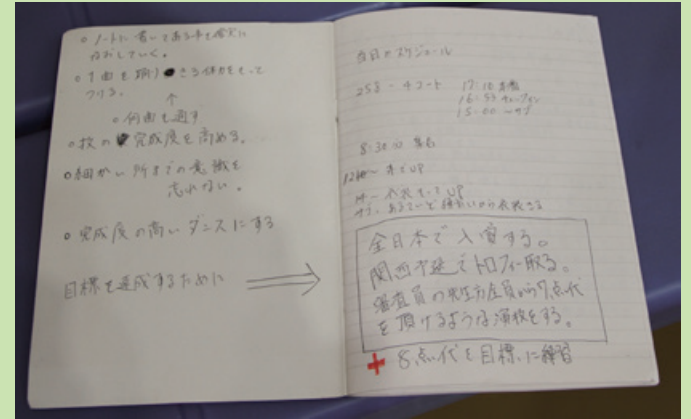 ○ノートに書いてある事を確実に
なおしていく。
○1曲を踊りきる体力をもって
つける。
↑
○何曲も通す
○技の完成度を高める。
○細かい所までの意識を
忘れない。
○完成度の高いダンスにする
目標を達成するために
当日のスケジュール
258 - 4コート 17:10 本番
16:55
15:00
8:30 集合
UP
UP
全日本で入賞する。
関西中継でトロフィー取る。
審査員の先生方全員から7点代
を頂けるような演技をする。
+ 8点代を目標に練習